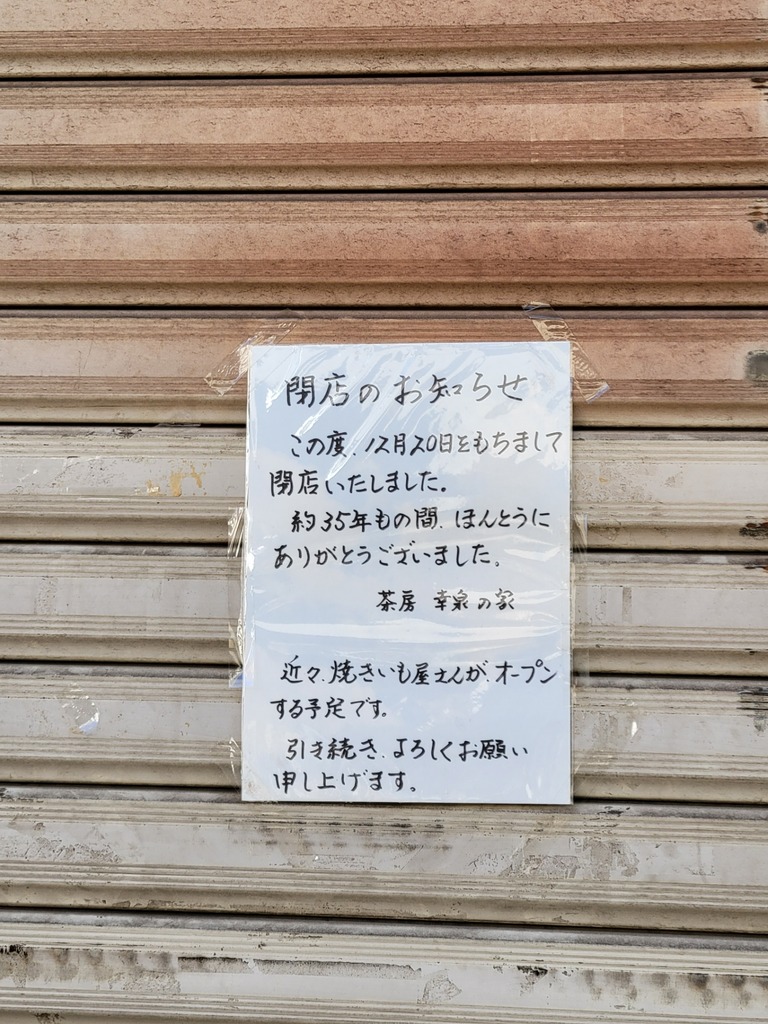 閉店のお知らせ
この度、12月20日をもちまして
閉店いたしました。
約35年もの間、ほんとうに
ありがとうございました。
茶房 幸泉の家
近々、焼きいも屋さんが、オープン
する予定です。
引き続き、よろしくお願い
申し上げます。